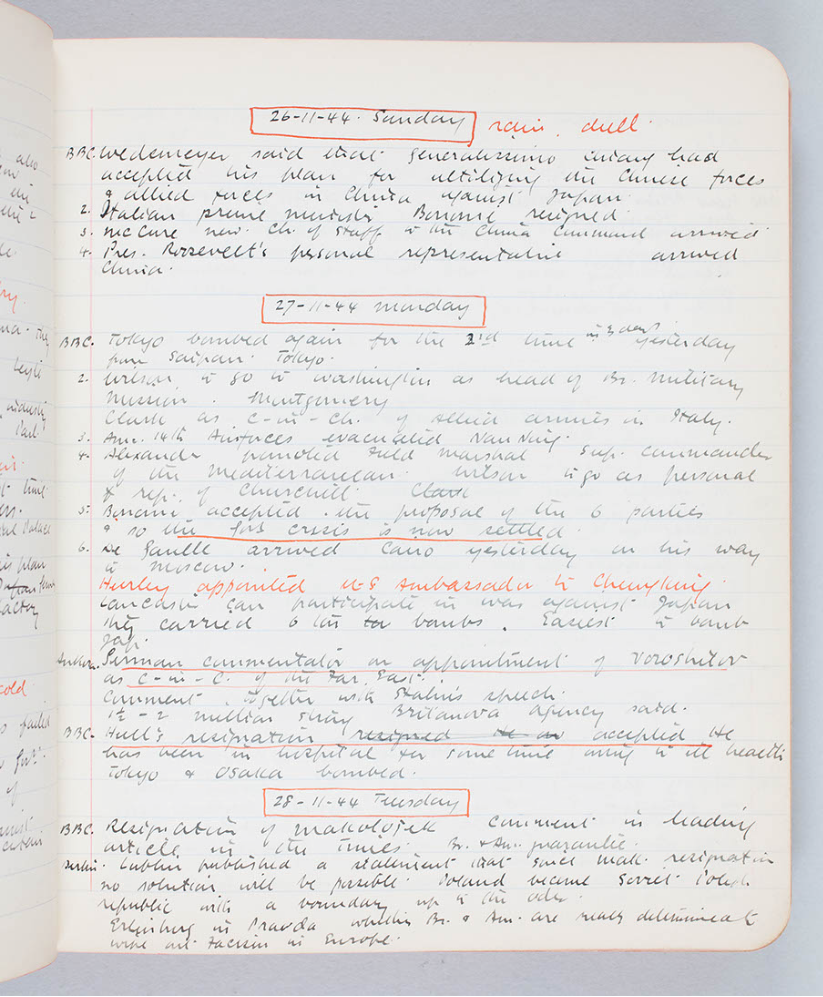 26-11-44. Sunday rain, dull
BBC. Wedemeyer said that Generalissimo Chiang had
accepted his plan for utilizing the Chinese forces
& allied forces in China against Japan.
2. Italian prime minister Bonomi resigned.
3. McClure new Ch. of Staff to the China Command arrived
4. Pres. Roosevelt's personal representative arrived
China.
27-11-44 Monday
BBC. Tokyo bombed again for the 2nd time in 3 days yesterday
from Saipan. Tokyo.
2. Wilson to go to Washington as head of Br. Military
Mission. Montgomery
Clark as C-in-Ch. of Allied armies in Italy.
3. Am. 14th Airforces evacuated Nan Ning.
4. Alexander promoted Field Marshal Sup. Commander
of the Mediterranean. Wilson to go as personal
& rep. of Churchill. Clark
5. Bonomi accepted the proposal of the 6 parties
& so the Gov. crisis is now settled.
6. De Gaulle arrived Cairo yesterday on his way
to Moscow.
Hurley appointed U.S Ambassador to Chungking.
Lancaster can participate in war against Japan
They carried 6 ton bombs. Easiest to bomb
Jap.
Ankara. German commentator on appointment of Voroshilov
as C-in-C. of the Far East.
Comment, together with Stalin's speech.
1½-2 million strong Britanova agency said.
BBC. Hull's resignation resigned accepted He
has been in hospital for some time owing to ill health
Tokyo & Osaka bombed.
28-11-44 Tuesday
BBC. Resignation of Mikolojek comment in leading
article in the Times. Br. & Am. guarantee.
Berlin. Lublin published a statement that since Mik. resignation
no solution will be possible. Poland became Soviet Polish
republic with a boundary up to the Oder.
in Pravda whether Br. & Am. are really determined to
wipe out Facism in Europe.
also
the
Leyte
industry
Parl.
time
Palace
his plan
factory
cold
failed
Gov.
of